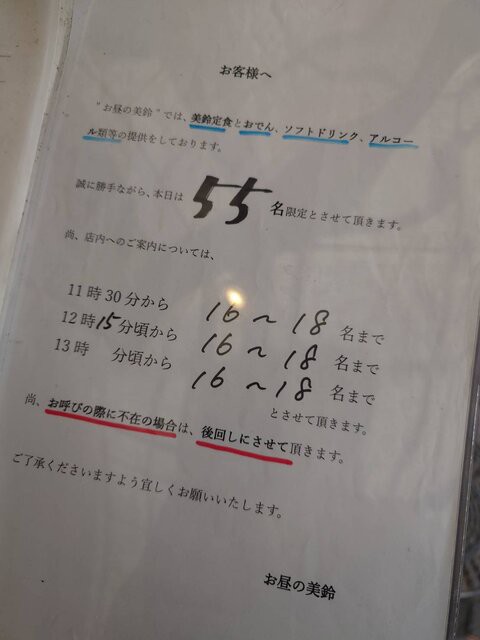 お客様へ
"お昼の美鈴"では、美鈴定食とおでん、ソフトドリンク、アルコー
ル類等の提供をしております。
誠に勝手ながら、本日は 55 名限定とさせて頂きます。
尚、店内へのご案内については、
11時30分から 16～18 名まで
12時15分頃から 16～18 名まで
13時 分頃から 16～18 名まで
とさせて頂きます。
尚、お呼びの際に不在の場合は、後回しにさせて頂きます。
ご了承くださいますよう宜しくお願いいたします。
お昼の美鈴